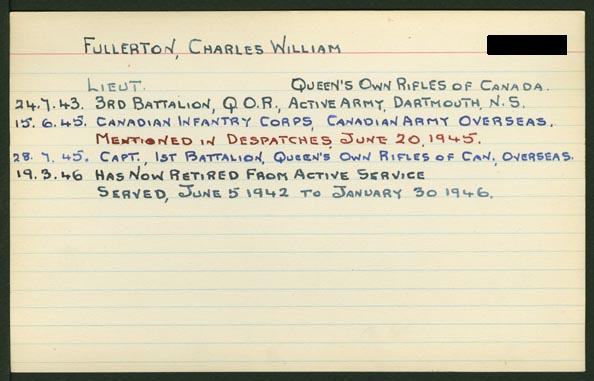 FULLERTON, CHARLES WILLIAM
LIEUT. QUEEN'S OWN RIFLES OF CANADA.
24.7.43. 3RD BATTALION, Q.O.R., ACTIVE ARMY, DARTMOUTH, N.S.
15.6.45. CANADIAN INFANTRY CORPS, CANADIAN ARMY OVERSEAS.
MENTIONED IN DESPATCHES, JUNE 20, 1945.
28.7.45. CAPT., 1ST BATTALION, QUEEN'S OWN RIFLES OF CAN., OVERSEAS.
19.3.46 HAS NOW RETIRED FROM ACTIVE SERVICE
SERVED, JUNE 5 1942 TO JANUARY 30 1946.